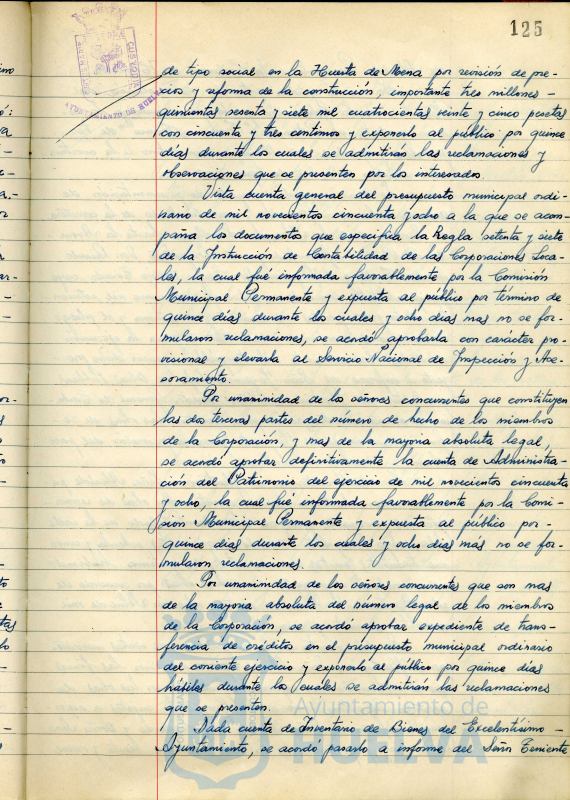 125
de tipo social en la Huerta de Mena por revisión de pre-
cios y reforma de la construcción, importante tres millones -
quinientas sesenta y siete mil cuatrocientas veinte y cinco pesetas
con cincuenta y tres centimos y exponerlo al público por quince
días durante los cuales se admitirán las reclamaciones y
observaciones que se presenten por los interesados
Vista cuenta general del presupuesto municipal ordi-
nario de mil novecientos cincuenta y ocho a la que se acom-
paña los documentos que especifica la Regla setenta y siete
de la Instrucción de Contabilidad de las Corporaciones Loca-
les, la cual fué informada favorablemente por la Comisión
Municipal Permanente y expuesta al público por término de
quince días durante los cuales y ocho días mas no se for-
mularon reclamaciones, se acordó aprobarla con carácter pro-
visional y elevarla al Servicio Nacional de Inspección y Ase-
soramiento.
Por unanimidad de los señores concurrentes que constituyen
las dos terceras partes del número de hecho de los miembros
de la Corporación, y mas de la mayoria absoluta legal,
se acordó aprobar definitivamente la cuenta de Administra-
ción del Patrimonio del ejercicio de mil novecientos cincuenta
y ocho, la cual fué informada favorablemente por la Comi-
sión Municipal Permanente y expuesta al público por -
quince días durante los cuales y ocho días más no se for-
mularon reclamaciones.
Por unanimidad de los señores concurrentes que son mas
de la mayoria absoluta del número legal de los miembros
de la Corporación, se acordó aprobar expediente de trans-
ferencia de créditos en el presupuesto municipal ordinario
del corriente ejercicio y exponerlo al público por quince días
hábiles durante los cuales se admitirán las reclamaciones
que se presenten.
Dada cuenta de Inventario de Bienes del Excelentísimo -
Ayuntamiento, se acordó pasarlo a informe del Señor Teniente
AYUNTAMIENTO DE HUELVA
Ayuntamiento de
HUELVA